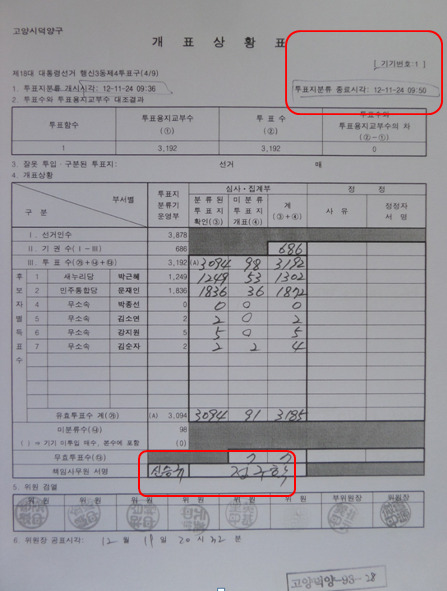 고양시덕양구
개 표 상 황 표
[ 기기번호 1 ]
제18대 대통령선거 행신3동제4투표구(4/9)
1. 투표지분류 개시시각: 12-11-24 09:36 투표지분류 종료시각: 12-11-24 09:50
2. 투표수와 투표용지교부수 대조결과
투표함수 투표용지교부수 (①) 투 표 수 (②) 투표수와 투표용지교부수의 차 (②-①)
1 3,192 3,192 0
3. 잘못 투입·구분된 투표지: 선거 매
4. 개표상황
구 분 부서별 투표지 분류기 운영부 심사·집계부 정 정
분류된 투표지 확인(③) 미분류 투표지 개표(④) 계 (③+④) 사 유 정정자 서 명
Ⅰ. 선거인수 3,878
Ⅱ. 기 권 수 (Ⅰ-Ⅲ) 686 686
Ⅲ. 투 표 수 3,192 (A) 3094 98 3192
후보자별득표수
1 새누리당 박근혜 1,249 1249 53 1302
2 민주통합당 문재인 1,836 1836 36 1872
4 무소속 박종선 0 0 0 0
5 무소속 김소연 2 2 0 2
6 무소속 강지원 5 5 0 5
7 무소속 김순자 2 2 2 4
유효투표수 계 (A) 3,094 3094 91 3185
미분류수 98
( ) ⇒ 기기 미투입 매수, 본수에 포함 (0)
무효투표수 7 7
책임사무원 서명
5. 위원 검열
위 원 위 원 위 원 위 원 위 원 위 원 부위원장 위원장
6. 위원장 공표시각: 12 월 19 일 20 시 32 분
고양덕양-93-28